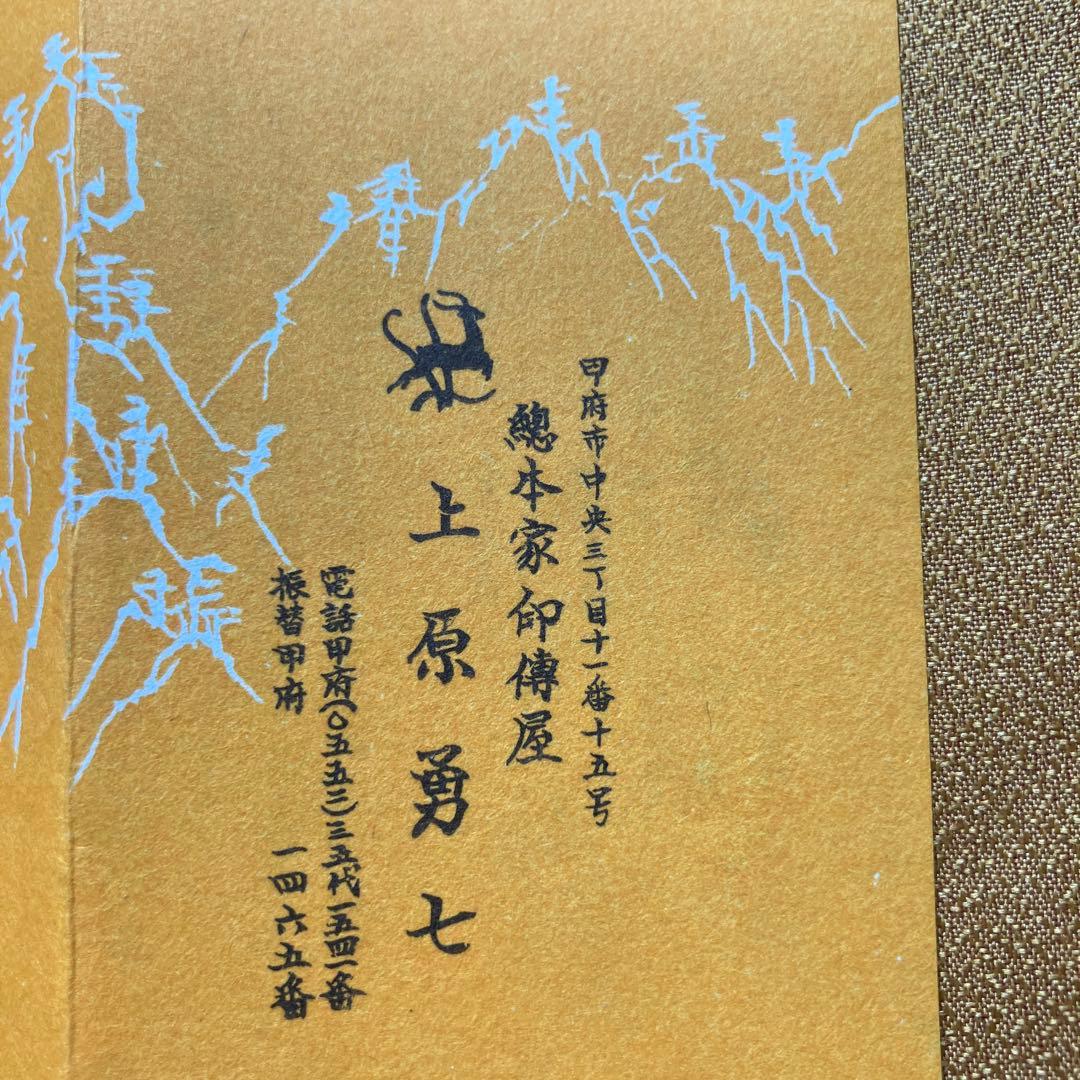 甲府市中央三丁目十一番十五号
總本家印傳屋
上原勇七
電話甲府(〇五五二)三五代一五四一番
振替甲府 一四六五番